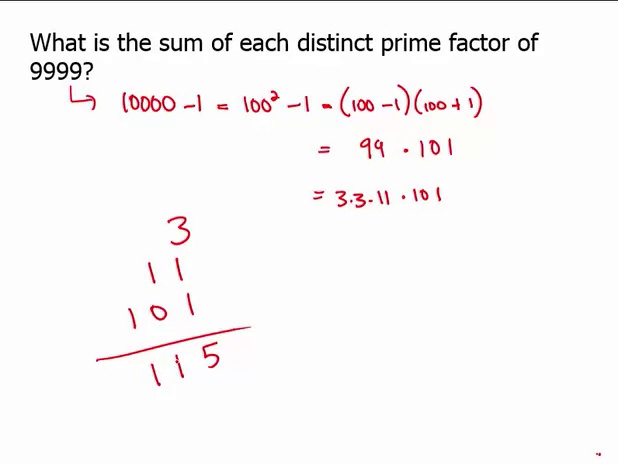 What is the sum of each distinct prime factor of
9999?
10000 - 1 = 100² - 1 = (100 - 1)(100 + 1)
= 99 · 101
= 3·3·11·101
3
11
101
115